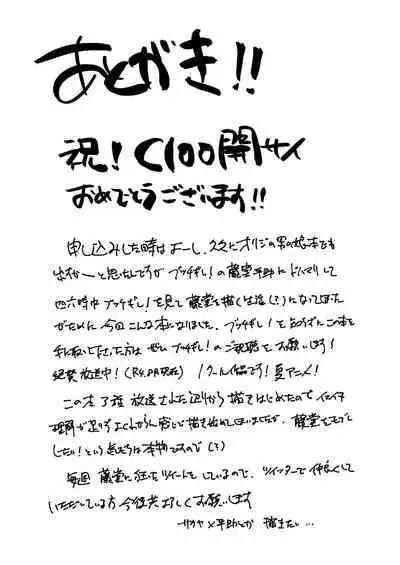 あとがき!!
祝!C100開サイ
おめでとうございます!!
申し込みした時はよーし、久々にオリジの男の娘本でも
出すかーと思ったんですが ブッチギレ!の藤堂平助にドハマリして
四六時中ブッチギレ!を見て藤堂を描く生活(?)になってしまった
がために今回こんな本になりました。ブッチギレ!を知らずにこの本を
手に取って下さった方は ぜひ ブッチギレ!のご視聴を お願いします!
絶賛放送中!(R4.8月現在) 1クール作品です!夏アニメ!
この本 3話 放送された辺りから描きはじめたので イマイチ
理解が足りずよくわからん感じで描き始めてしまいましたが、藤堂をモブ
したい!という気持ちは本物ですので(?)
毎週 藤堂に狂ったツイートをしているので、ツイッターで仲良くして
いただいている方 今後共よろしくお願いします
サクヤ×平助とか 描きたい…